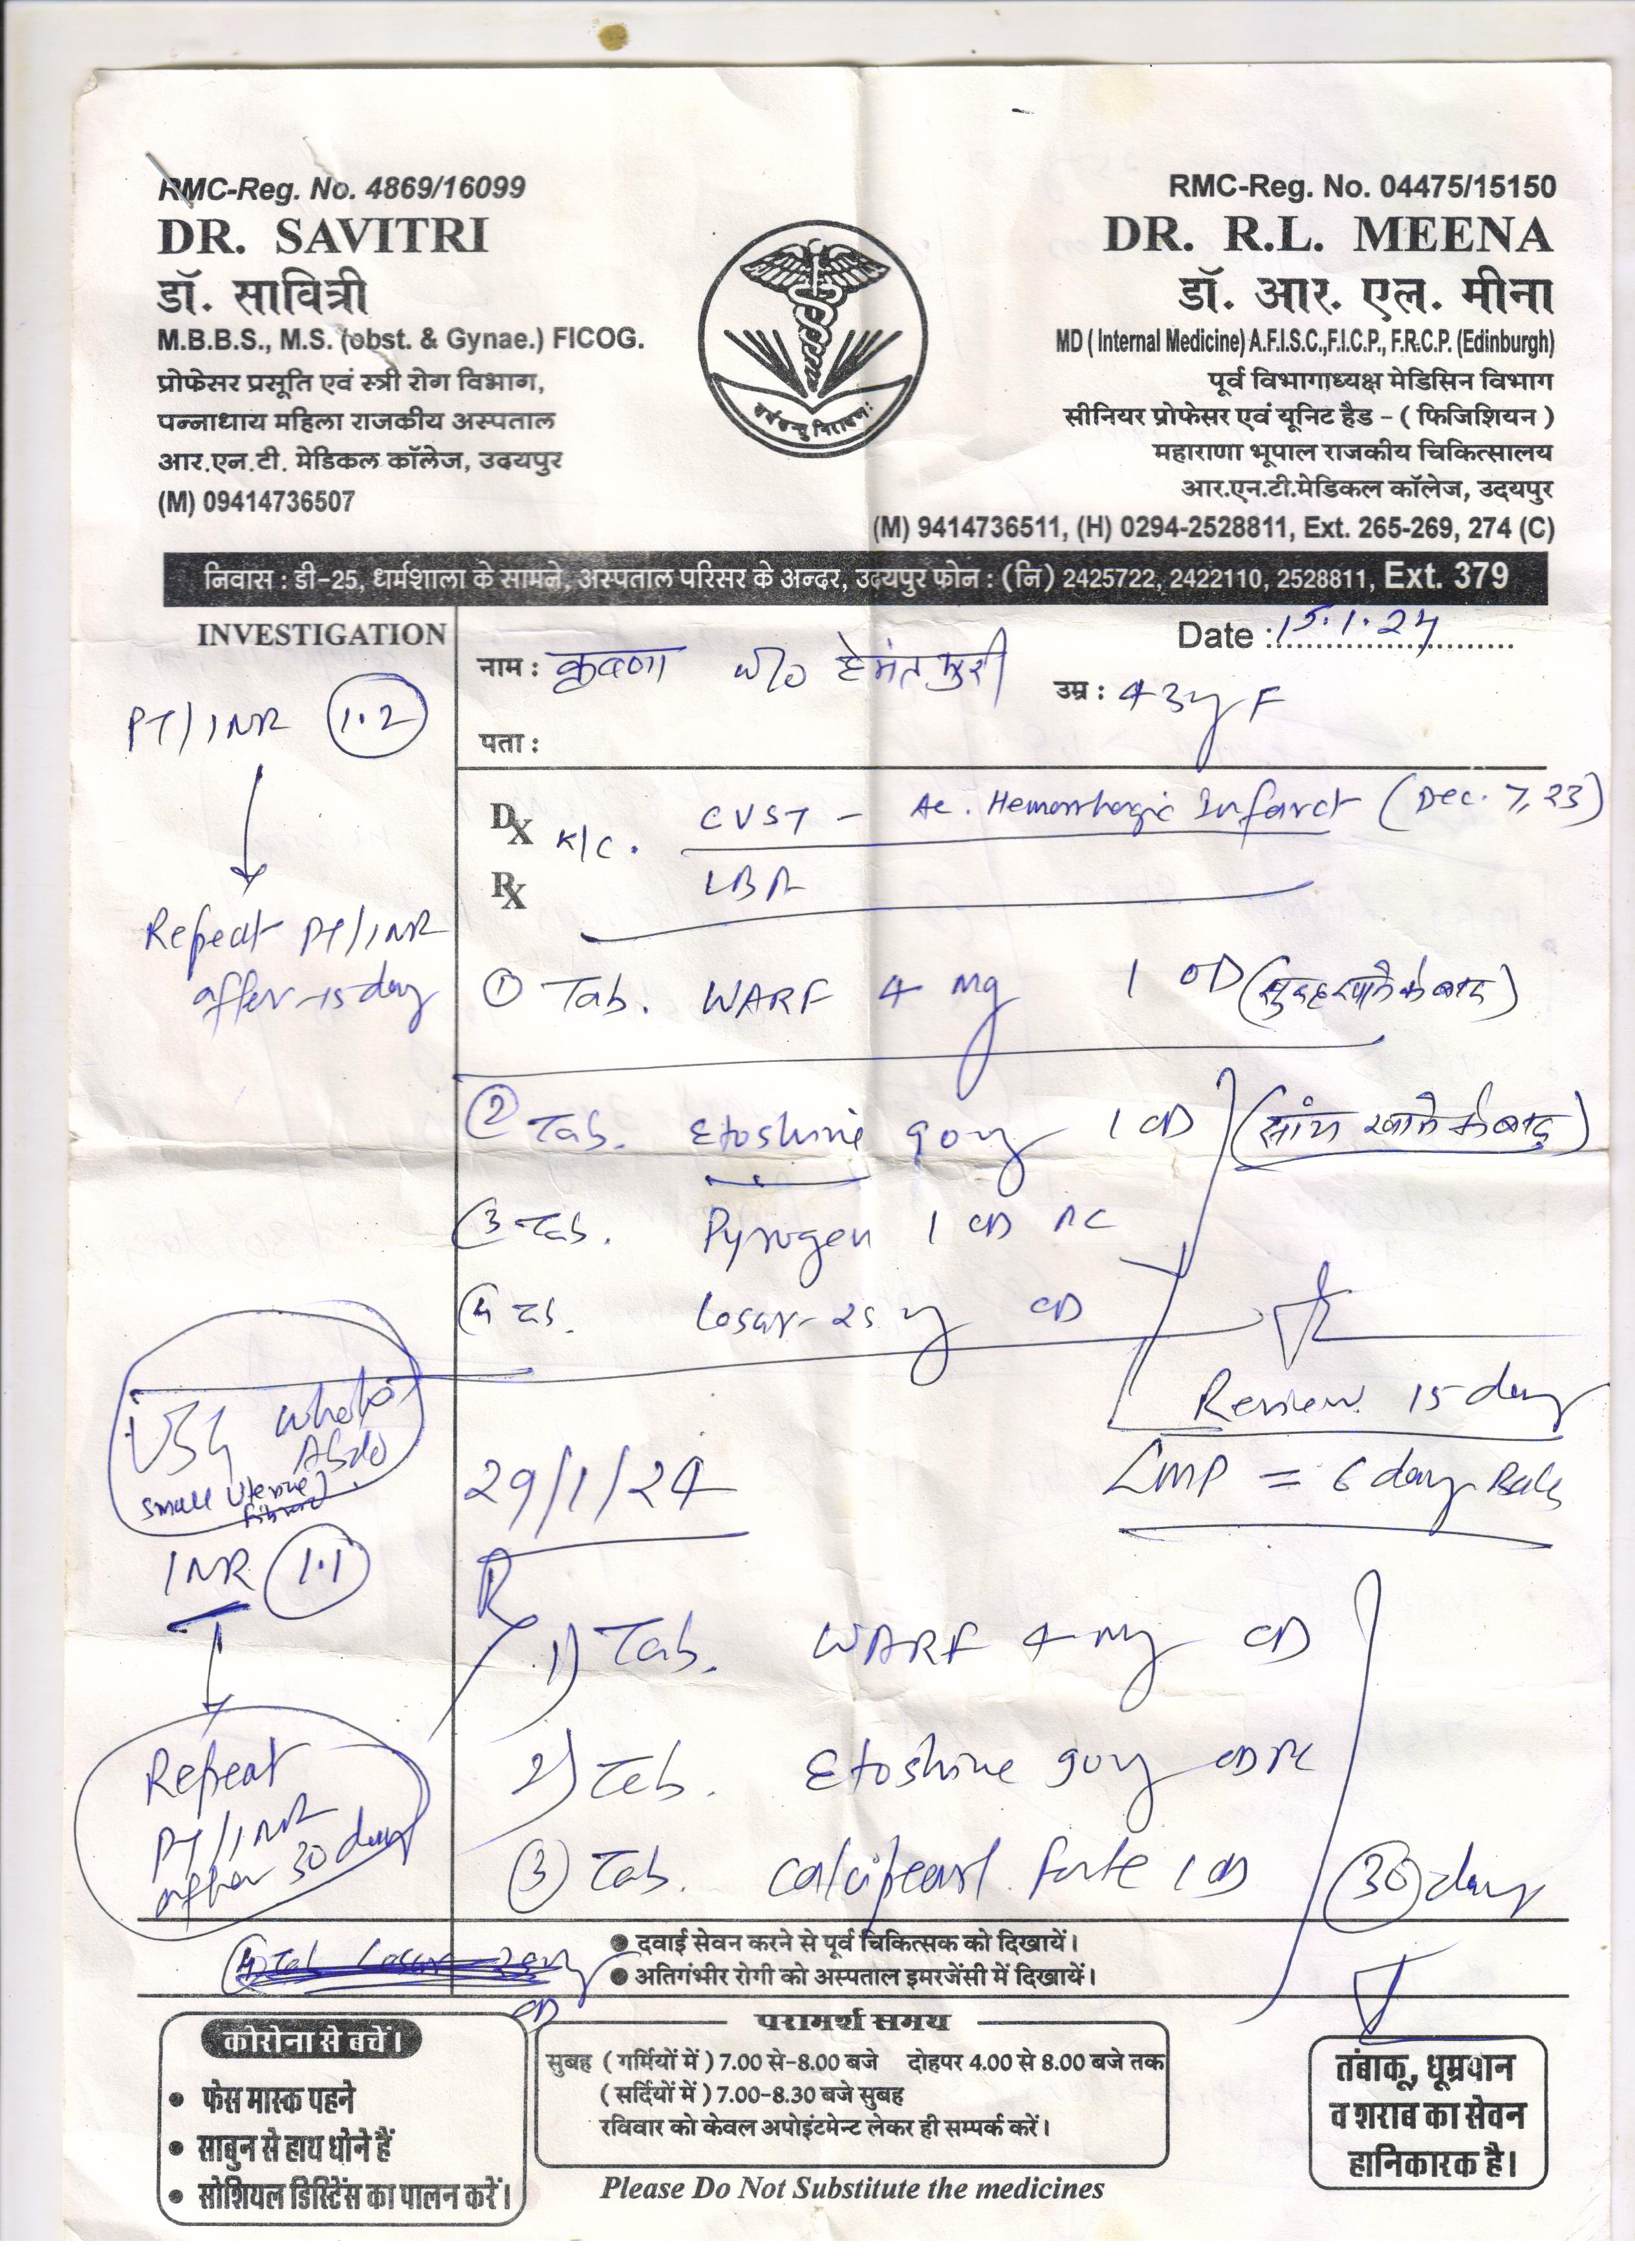 RMC-Reg. No. 4869/16099
DR. SAVITRI
डॉ. सावित्री
M.B.B.S., M.S. (obst. & Gynae.) FICOG.
प्रोफेसर प्रसूति एवं स्त्री रोग विभाग,
पन्नाधाय महिला राजकीय अस्पताल
आर.एन.टी. मेडिकल कॉलेज, उदयपुर
(M) 09414736507
RMC-Reg. No. 04475/15150
DR. R.L. MEENA
डॉ. आर. एल. मीना
MD ( Internal Medicine) A.F.I.S.C.,F.I.C.P., F.R.C.P. (Edinburgh)
पूर्व विभागाध्यक्ष मेडिसिन विभाग
सीनियर प्रोफेसर एवं यूनिट हैड - ( फिजिशियन )
महाराणा भूपाल राजकीय चिकित्सालय
आर.एन.टी.मेडिकल कॉलेज, उदयपुर
(M) 9414736511, (H) 0294-2528811, Ext. 265-269, 274 (C)
निवास : डी-25, धर्मशाला के सामने, अस्पताल परिसर के अन्दर, उदयपुर फोन : (नि) 2425722, 2422110, 2528811, Ext. 379
INVESTIGATION
Date : 15.1.24
नाम : w/o
उम्र : 43y F
पता :
PT/INR 1.2
Repeat PT/INR
after 15 day
Dx K/C. CVST - Ac. Hemorrhagic Infarct (Dec. 7, 23)
Rx LBA
① Tab. WARF 4 mg 1 OD (सुबह खाने के बाद)
② Tab. Etoshine 90 mg 1 OD (सांय खाने के बाद)
③ Tab. Pyrogen 1 OD
④ Tab. Losar-25 mg OD
Review 15 day
LMP = 6 day Back
USG whole
Abdo
small uterine
fibroid
INR 1.1
Repeat
PT/INR
after 30 day
29/1/24
Rx
1) Tab. WARF 4 mg OD
2) Tab. Etoshine 90 mg OD
③ Tab. Calcipearl forte 1 OD
30 day
④ Tab Losar OD
● दवाई सेवन करने से पूर्व चिकित्सक को दिखायें।
● अतिगंभीर रोगी को अस्पताल इमरजेंसी में दिखायें।
कोरोना से बचें।
● फेस मास्क पहने
● साबुन से हाथ धोने हैं
● सोशियल डिस्टिेंस का पालन करें।
परामर्श समय
सुबह ( गर्मियों में ) 7.00 से-8.00 बजे दोहपर 4.00 से 8.00 बजे तक
( सर्दियों में ) 7.00-8.30 बजे सुबह
रविवार को केवल अपोइंटमेन्ट लेकर ही सम्पर्क करें।
Please Do Not Substitute the medicines
तंबाकू, धूम्रपान
व शराब का सेवन
हानिकारक है।